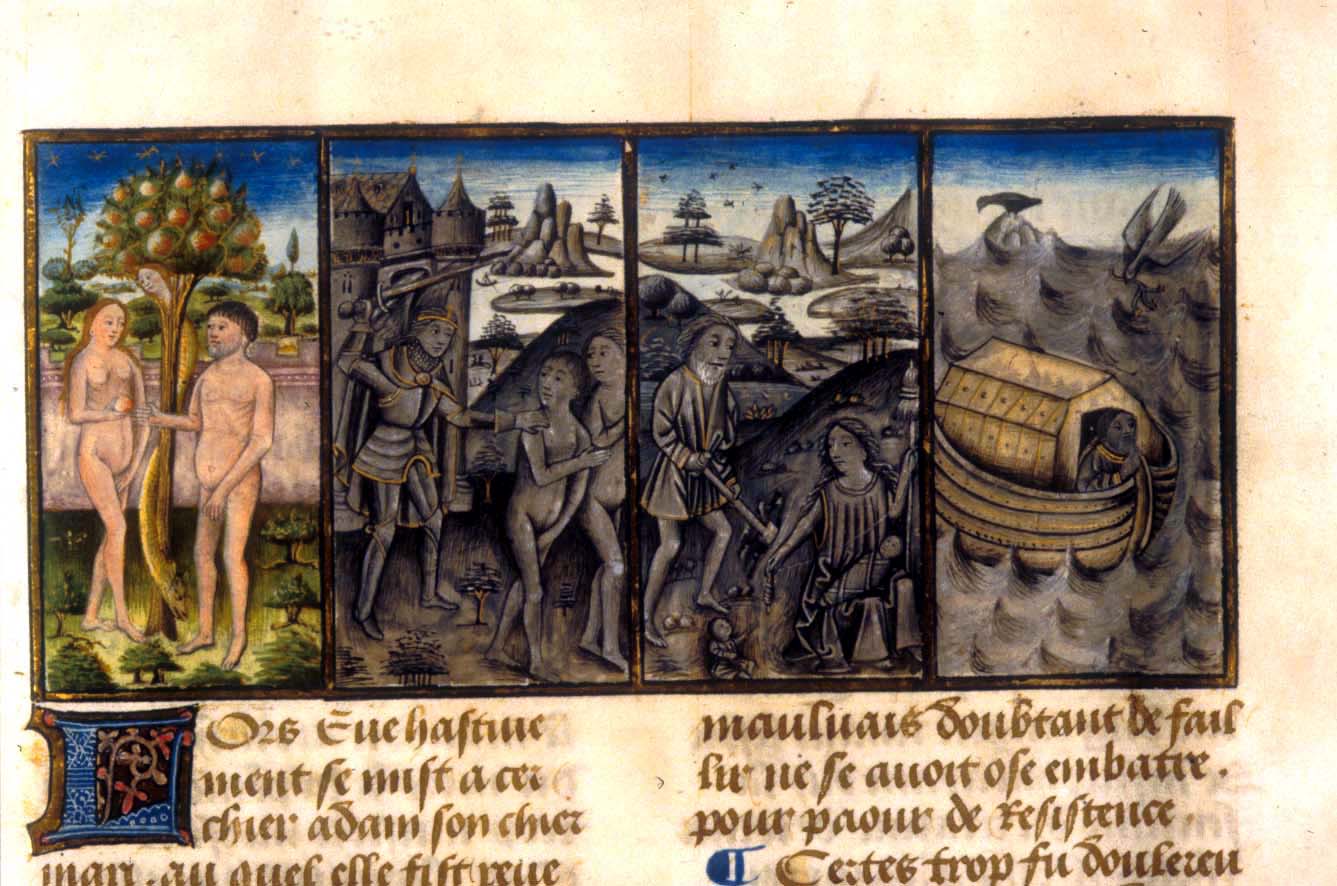 LOrs Eue hastiue
ment se mist a cer
chier adam son chier
mari. au quel elle fist reue
mauluais doubtant de fail
lir ne se auoit ose embatre.
pour paour de Resistence.
¶ Certes trop fu doulereu